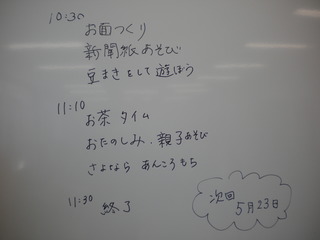 10:30
お面つくり
新聞紙あそび
豆まきをして遊ぼう
11:10
お茶 タイム
おたのしみ、親子あそび
さよなら あんころもち
11:30
終了
次回
5月23日